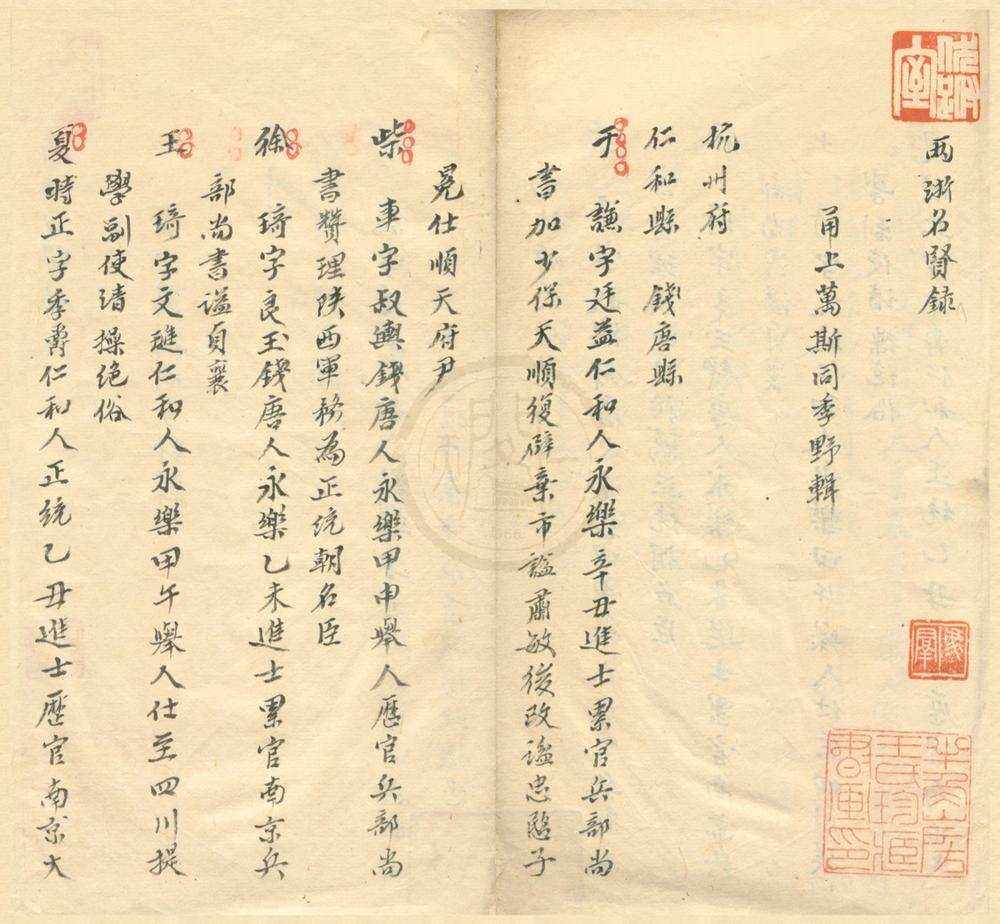 兩浙名賢錄
甬上萬斯同季野輯
杭州府
仁和縣錢唐縣
于謙字廷益仁和人永樂辛丑進士累官兵部尚
書加少保天順復辟棄市謚肅敏後改謚忠愍子
冕仕順天府尹
柴車字叔輿錢唐人永樂甲申舉人歷官兵部尚
書贊理陝西軍務為正統朝名臣
徐琦字良玉錢唐人永樂乙未進士累官南京兵
部尚書謚貞襄
王琦字文璡仁和人永樂甲午舉人仕至四川提
學副使清操絕俗
夏時正字季爵仁和人正統乙丑進士歷官南京大